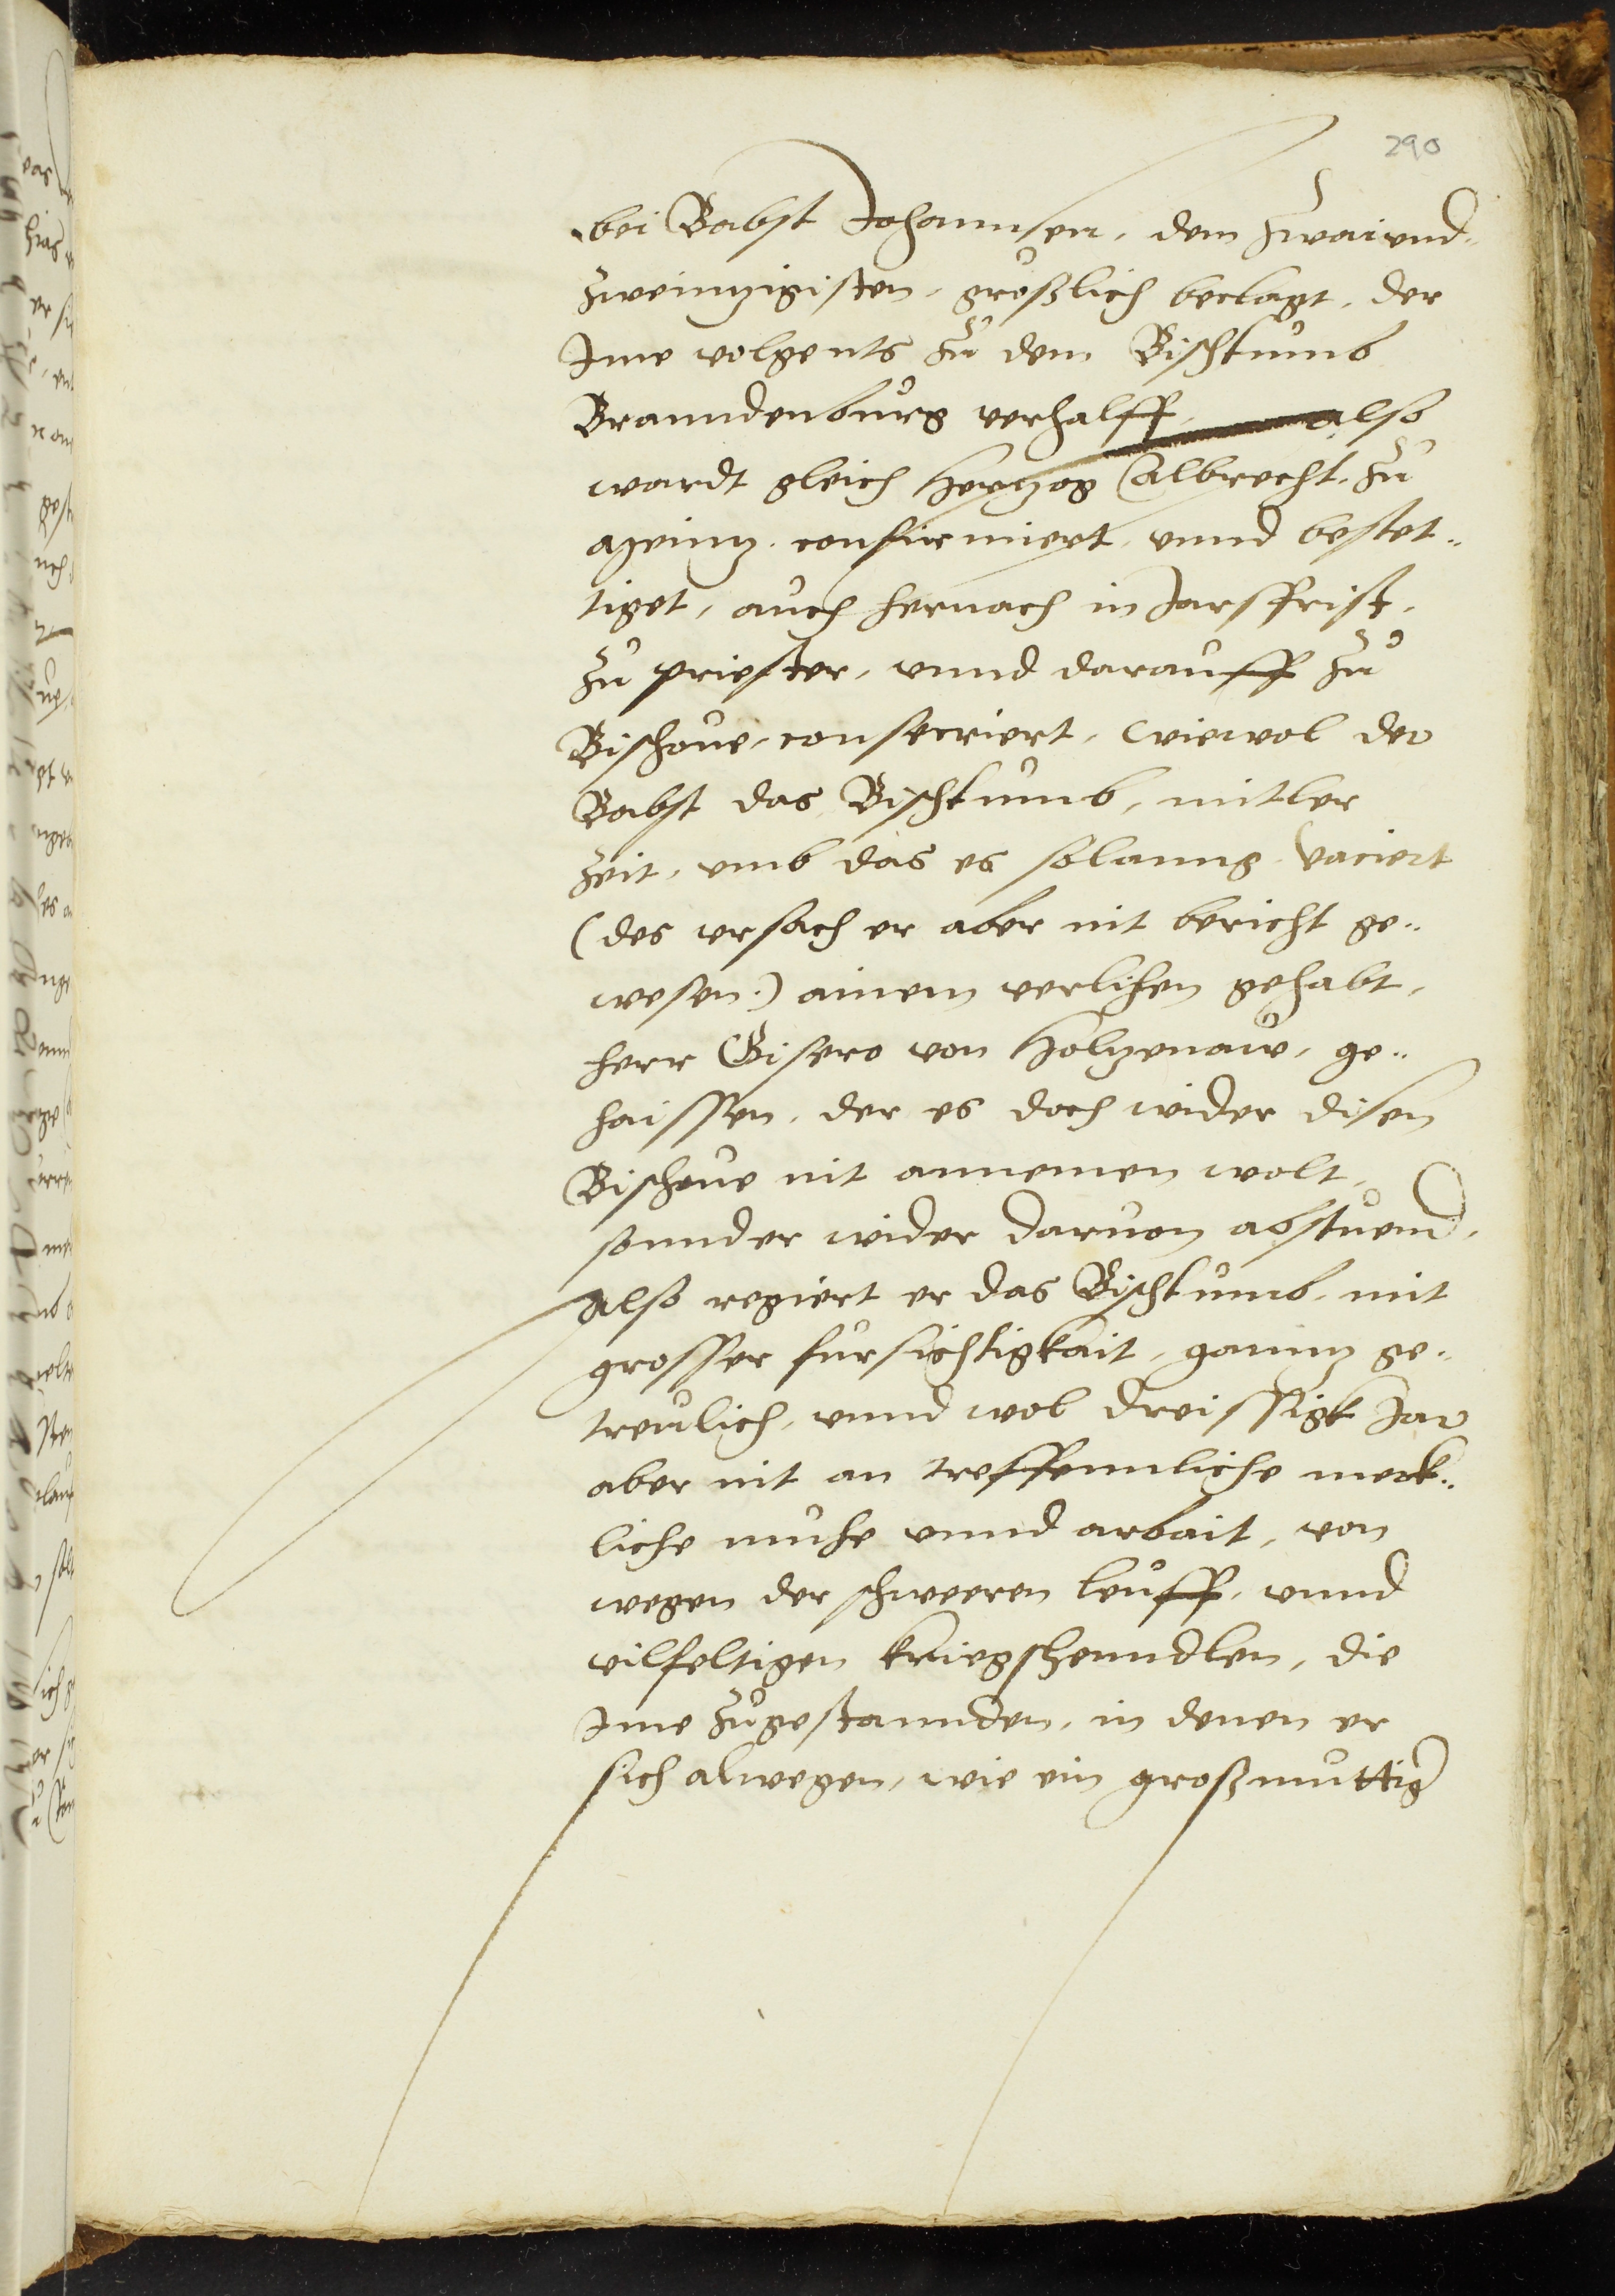 290
bei Babst Johannsen, dem zwaiund-
zweinzigisten, großlich beclagt, der
Ime volgents zu dem Bischtumb
Branndenburg verhalff, also
wardt gleich Hertzog Albrecht, zu
confirmiert, unnd bestet-
tiget, auch hernach in Jarsfrist,
zu priester, unnd darauff zu
Bischove, consecriert, wiewol der
Babst das Bischtumb, mitler
zeit, umb das es solanng vaciert
(des ursach er aber nit bericht ge-
wesen:) ainem verlihen gehabt,
herr Gisero von Holtzenaw, ge-
haissen, der es doch wider disen
Bischove nit annemen wolt,
sonnder wider darvon abstuend,
Also regiert er das Bischtumb, mit
grosser fursichtigkait, ganntz ge-
treulich, unnd wol dreissigk Jar
aber nit an treffennliche merk-
liche muhe unnd arbait, von
wegen der schweeren leuff, unnd
vilfeltigen kriegshenndlen, die
Ime zugestannden, in denen er
sich alwegen, wie ein großmuttig